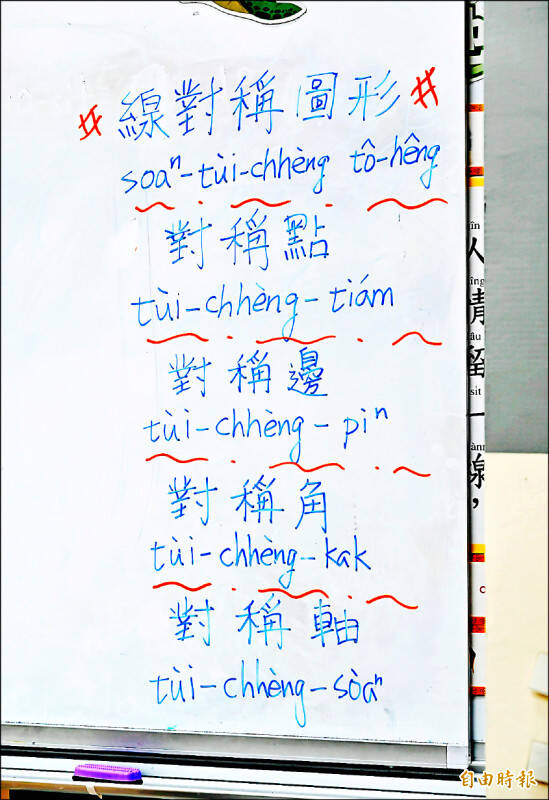 #線對稱圖形#
soaⁿ-tùi-chhèng tô-hêng
對稱點
tùi-chhèng-tiám
對稱邊
tùi-chhèng-piⁿ
對稱角
tùi-chhèng-kak
對稱軸
tùi-chhèng-sòaⁿ
人
情
留
sit
一
線,
自由時報